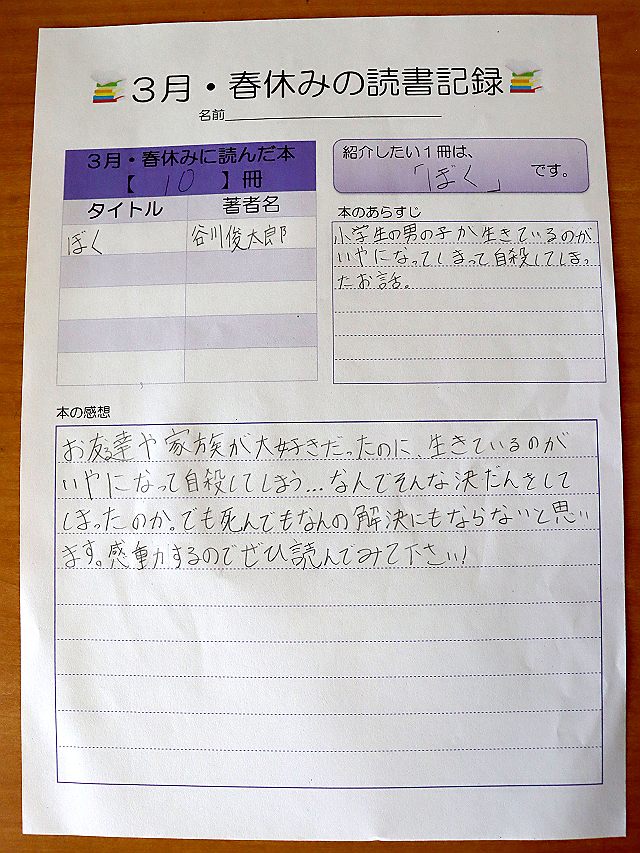 ３月・春休みの読書記録
名前
３月・春休みに読んだ本
【 10 】冊
タイトル 著者名
ぼく 谷川俊太郎
紹介したい１冊は、
「ぼく」 です。
本のあらすじ
小学生の男の子が生きているのが
いやになってしまって自殺してしまっ
たお話。
本の感想
お友達や家族が大好きだったのに、生きているのが
いやになって自殺してしまう…なんでそんな決だんをして
しまったのか。でも死んでもなんの解決にもならないと思い
ます。感動するのでぜひ読んでみて下さい!